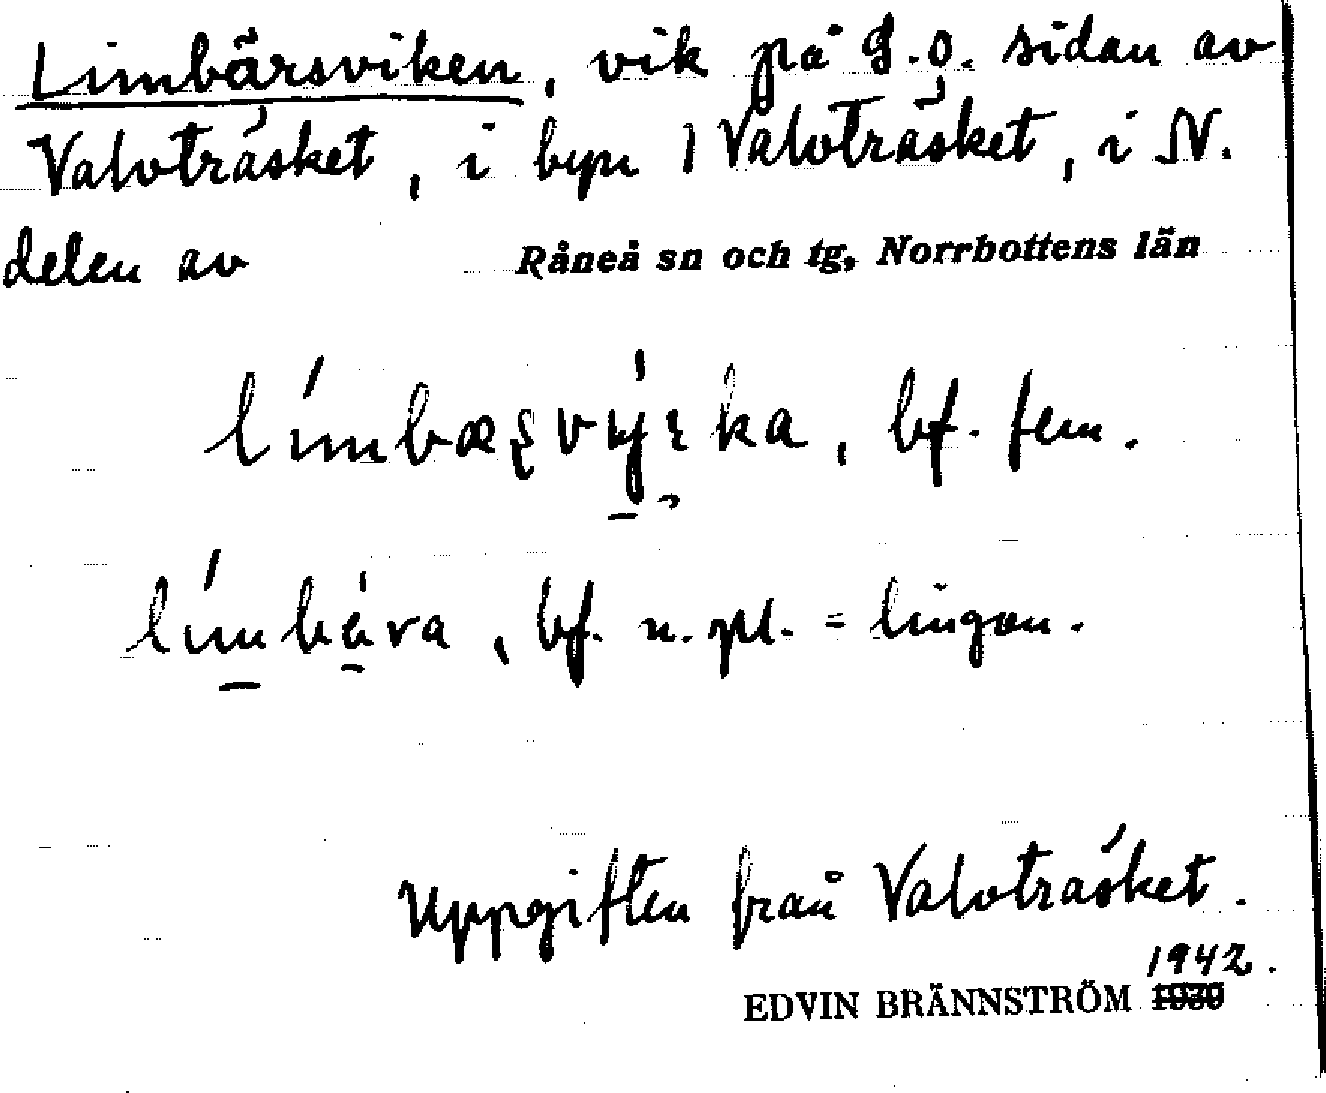 Limbärsviken, vik på S.ö. sidan av
Valvträsket, i byn 1 Valvträsket, i N.
delen av Råneå sn och tg, Norrbottens län
bf. fem.
bf. n. pl. = lingon.
Uppgiften från Valvträsket.
1942.
EDVIN BRÄNNSTRÖM 1930